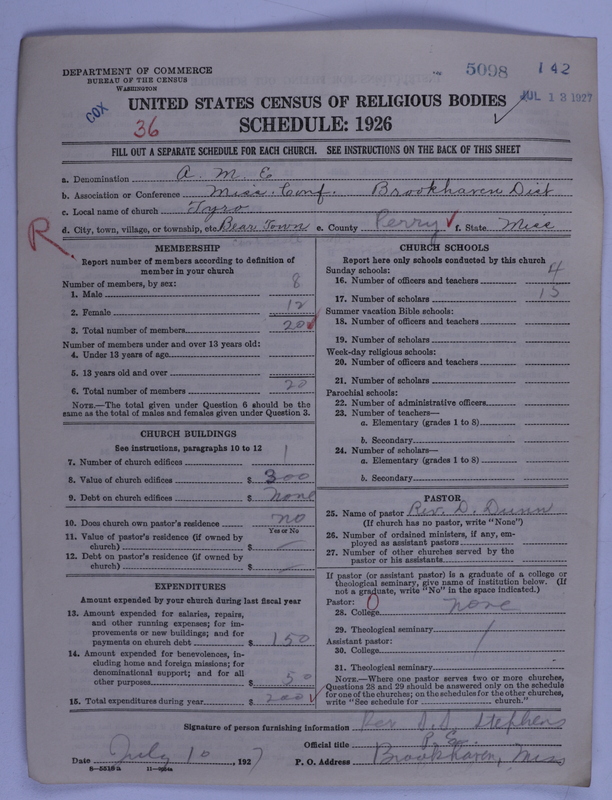 DEPARTMENT OF COMMERCE
BUREAU OF THE CENSUS
WASHINGTON
5098 142
COX
UNITED STATES CENSUS OF RELIGIOUS BODIES
JUL 13 1927
36
SCHEDULE: 1926
FILL OUT A SEPARATE SCHEDULE FOR EACH CHURCH. SEE INSTRUCTIONS ON THE BACK OF THIS SHEET
a. Denomination A. M. E
b. Association or Conference Miss. Conf. Brookhaven Dist
c. Local name of church Tyro
d. City, town, village, or township, etc. Bear Town e. County Perry f. State Miss
R.
MEMBERSHIP
Report number of members according to definition of
member in your church
Number of members, by sex:
1. Male 8
2. Female 12
3. Total number of members 20
Number of members under and over 13 years old:
4. Under 13 years of age
5. 13 years old and over
6. Total number of members 20
NOTE.—The total given under Question 6 should be the
same as the total of males and females given under Question 3.
CHURCH BUILDINGS
See instructions, paragraphs 10 to 12
7. Number of church edifices 1
8. Value of church edifices $ 300
9. Debt on church edifices $ none
10. Does church own pastor's residence no
Yes or No
11. Value of pastor's residence (if owned by
church) $
12. Debt on pastor's residence (if owned by
church) $
EXPENDITURES
Amount expended by your church during last fiscal year
13. Amount expended for salaries, repairs,
and other running expenses; for im-
provements or new buildings; and for
payments on church debt $ 150
14. Amount expended for benevolences, in-
cluding home and foreign missions; for
denominational support; and for all
other purposes $ 50
15. Total expenditures during year $ 200
CHURCH SCHOOLS
Report here only schools conducted by this church
Sunday schools:
16. Number of officers and teachers 4
17. Number of scholars 15
Summer vacation Bible schools:
18. Number of officers and teachers
19. Number of scholars
Week-day religious schools:
20. Number of officers and teachers
21. Number of scholars
Parochial schools:
22. Number of administrative officers
23. Number of teachers—
a. Elementary (grades 1 to 8)
b. Secondary
24. Number of scholars—
a. Elementary (grades 1 to 8)
b. Secondary
PASTOR
25. Name of pastor Rev. D. Dunn
(If church has no pastor, write "None")
26. Number of ordained ministers, if any, em-
ployed as assistant pastors
27. Number of other churches served by the
pastor or his assistants
If pastor (or assistant pastor) is a graduate of a college or
theological seminary, give name of institution below. (If
not a graduate, write "No" in the space indicated.)
Pastor: 0
28. College none
29. Theological seminary
Assistant pastor:
30. College
31. Theological seminary
NOTE.—Where one pastor serves two or more churches,
Questions 28 and 29 should be answered only on the schedule
for one of the churches; on the schedules for the other churches,
write "See schedule for church."
Signature of person furnishing information Rev D. D. Stephens
Official title P. E.
Date July 10, 1927 P. O. Address Brookhaven, Miss